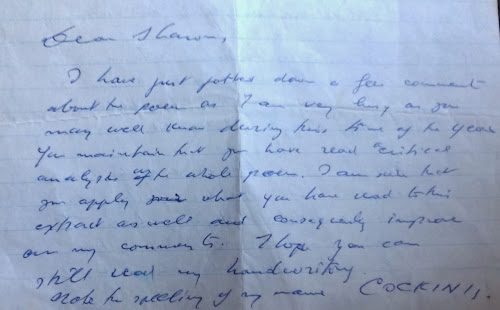 Dear Sharon,
I have just jotted down a few comment
about the poem as I am very busy as you
may well know during this time of the year
You maintain that you have read critical
analysis of the whole poem. I am sure that
you apply what you have read to this
extract as well and consequently improve
on my comments. I hope you can
still read my handwriting.
Note the spelling of my name COCKINI